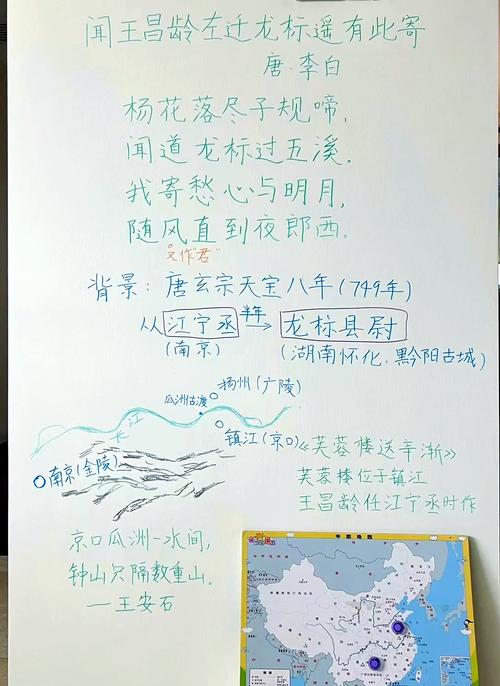 闻王昌龄左迁龙标遥有此寄
唐·李白
杨花落尽子规啼,
闻道龙标过五溪.
我寄愁心与明月,
随风直到夜郎西.
又作"君"
背景:唐玄宗天宝八年(749年)
从 江宁丞 半年 龙标县尉
(南京) (湖南怀化.黔阳古城)
扬州(广陵)
瓜洲古渡
长江
镇江(京口)
南京(金陵)
《芙蓉楼送辛渐》
芙蓉楼位于镇江
王昌龄任江宁丞时作
京口瓜洲一水间,
钟山只隔数重山.
——王安石
中国地图